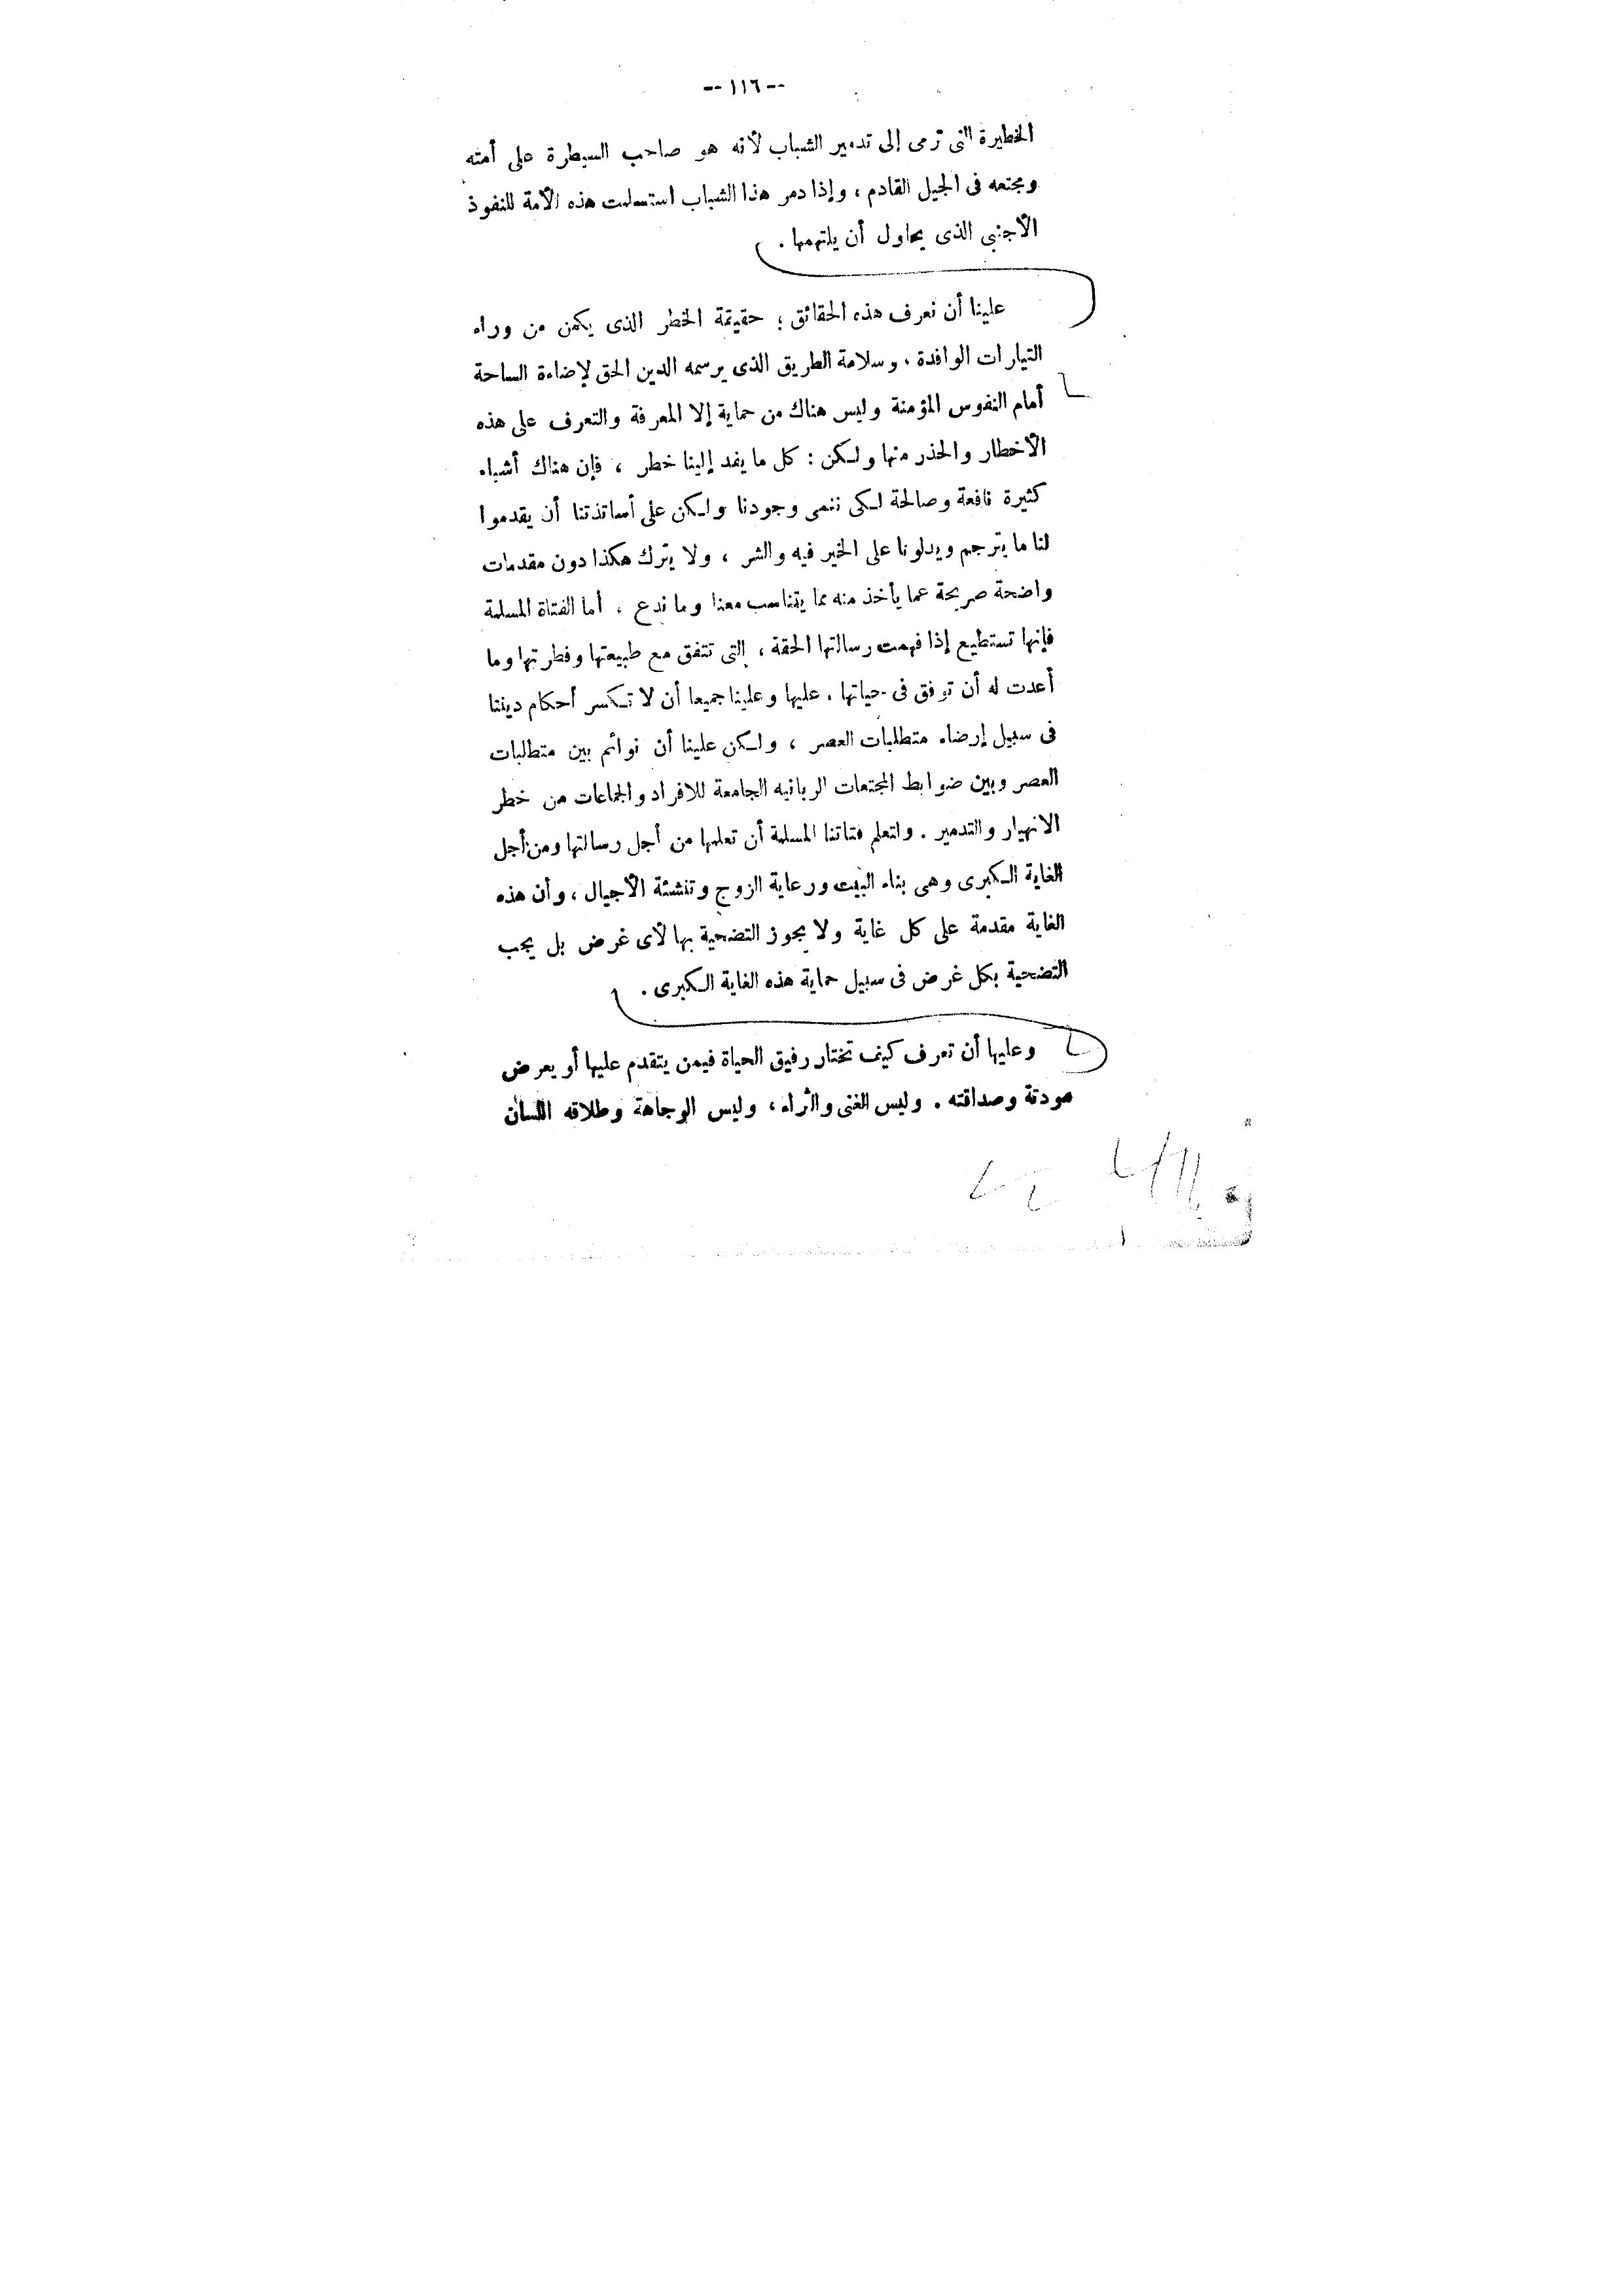 -- ١١٦ --
الخطيرة التى ترمى إلى تدمير الشباب لأنه هو صاحب السيطرة على أمته
ومجتمعه فى الجيل القادم ، وإذا دمر هذا الشباب استسلمت هذه الأمة للنفوذ
الأجنبى الذى يحاول أن يلتهمها .
علينا أن نعرف هذه الحقائق ؛ حقيقة الخطر الذى يكمن من وراء
التيارات الوافدة ، وسلامة الطريق الذى يرسمه الدين الحق لإضاءة الساحة
أمام النفوس المؤمنة وليس هناك من حماية إلا المعرفة والتعرف على هذه
الأخطار والحذر منها ولكن : كل ما يفد إلينا خطر ، فإن هناك أشياء
كثيرة نافعة وصالحة لكى ننمى وجودنا ولكن على أساتذتنا أن يقدموا
لنا ما يترجم ويدلونا على الخير فيه والشر ، ولا يترك هكذا دون مقدمات
واضحة صريحة عما يأخذ منه مما يتناسب معنا وما ندع ، أما الفتاة المسلمة
فإنها تستطيع إذا فهمت رسالتها الحقة ، التى تتفق مع طبيعتها وفطرتها وما
أعدت له أن توفق فى حياتها . عليها وعلينا جميعا أن لا تكسر أحكام ديننا
فى سبيل إرضاء متطلبات العصر ، ولكن علينا أن نوائم بين متطلبات
العصر وبين ضوابط المجتمعات الربانيه الجامعة للافراد والجماعات من خطر
الانهيار والتدمير . ولتعلم فتاتنا المسلمة أن تعلمها من أجل رسالتها ومن أجل
الغاية الكبرى وهى بناء البيت ورعاية الزوج وتنشئة الأجيال ، وأن هذه
الغاية مقدمة على كل غاية ولا يجوز التضحية بها لأى غرض بل يجب
التضحية بكل غرض فى سبيل حماية هذه الغاية الكبرى .
وعليها أن تعرف كيف تختار رفيق الحياة فيمن يتقدم عليها أو يعرض
مودتة وصداقته . وليس الغنى والثراء ، وليس الوجاهة وطلاقه اللسان